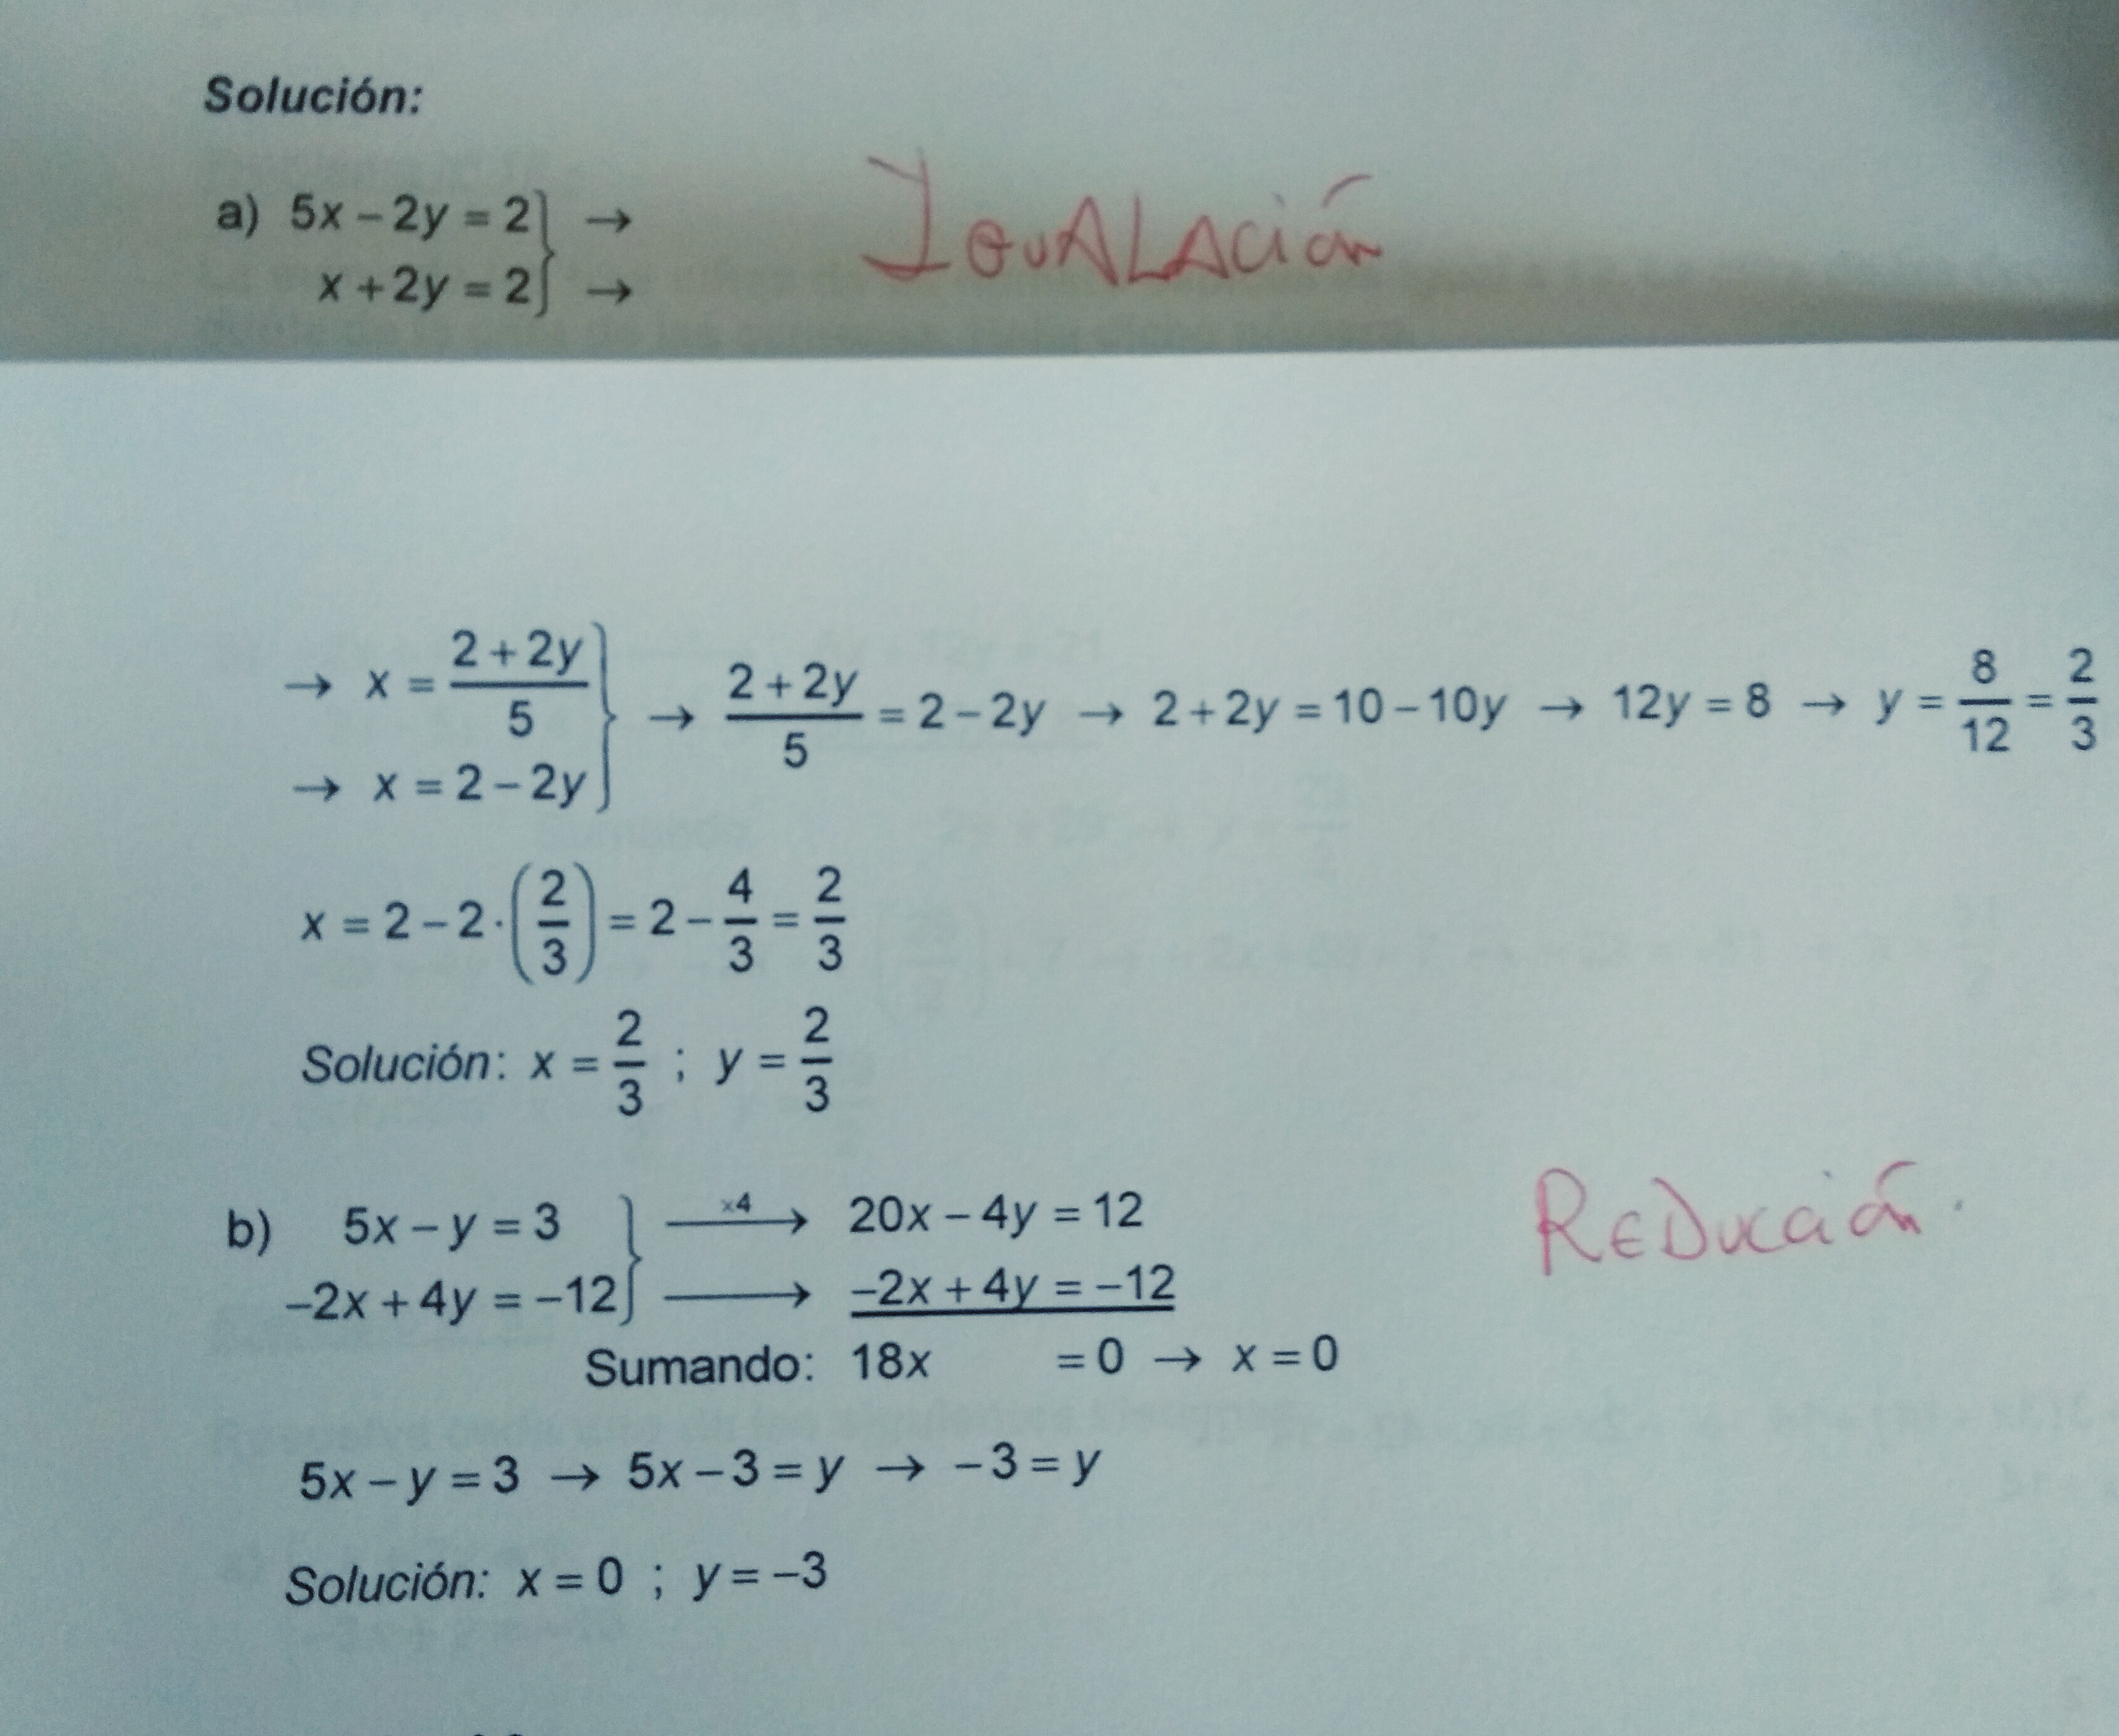 Solución:
a) 5x – 2y = 2 } →
IGUALACión
x + 2y = 2 } →
→ x = (2 + 2y)/5 } → (2 + 2y)/5 = 2 – 2y → 2 + 2y = 10 – 10y → 12y = 8 → y = 8/12 = 2/3
→ x = 2 – 2y
x = 2 – 2 · (2/3) = 2 – 4/3 = 2/3
Solución: x = 2/3 ; y = 2/3
b) 5x – y = 3 } ×4 → 20x – 4y = 12
REDucción.
–2x + 4y = –12 } → –2x + 4y = –12
Sumando: 18x = 0 → x = 0
5x – y = 3 → 5x – 3 = y → –3 = y
Solución: x = 0 ; y = –3